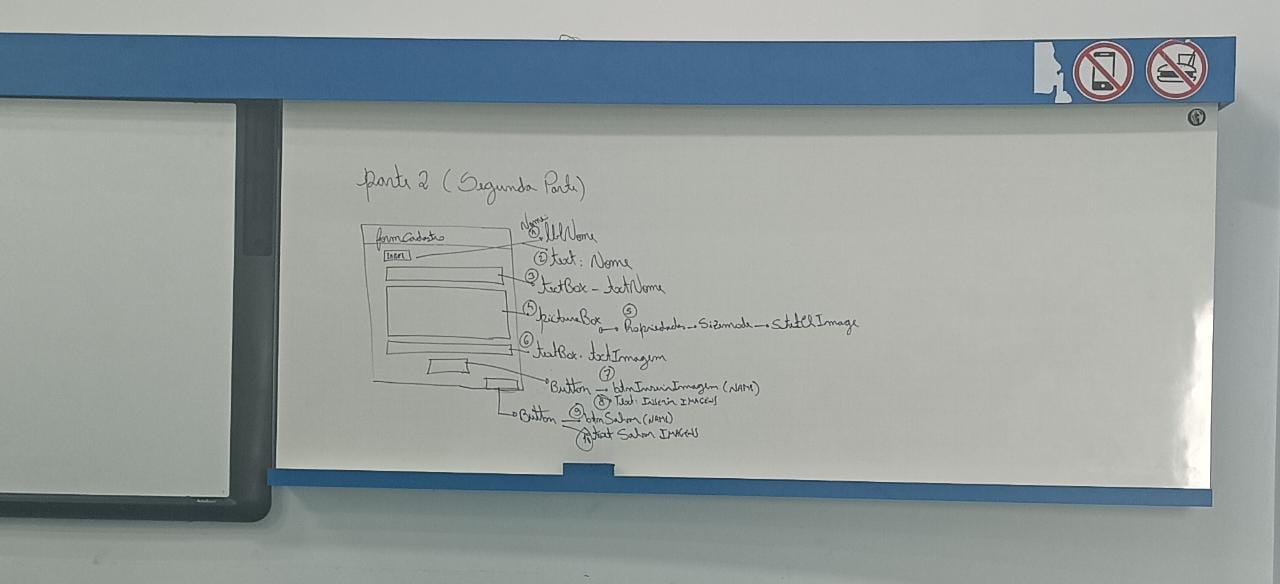 Parte 2 (Segunda Parte)
formCadastro
Name:
① lblNome
LABEL
② text: Nome
③ textBox - txtNome
④ pictureBox
⑤ Propriedades → Sizemode → StretchImage
⑥ textBox - txtImagem
Button → ⑦ btnInserirImagem (NAME)
⑧ Text: Inserir IMAGENS
Button → ⑨ btnSalvar (NAME)
⑩ text Salvar IMAGENS